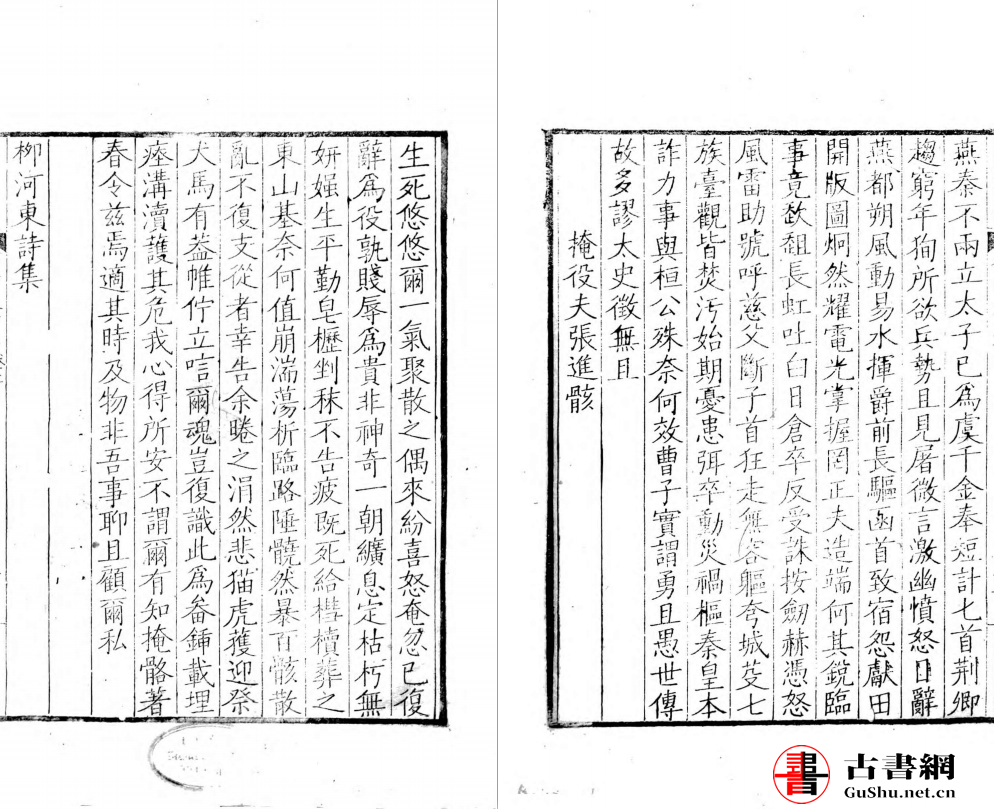 燕秦不兩立太子已爲虞千金奉短計匕首荆卿
趨窮年徇所欲兵勢且見屠微言激幽憤怒目辭
燕都朔風動易水揮爵前長驅函首致宿怨獻田
開版圖炯然耀電光掌握罔正夫造端何其銳臨
事竟趑趄長虹吐白日倉卒反受誅按劒赫憑怒
風雷助號呼慈父斷子首狂走無容軀夸城芟七
族臺觀皆焚汚始期憂患弭卒動災禍樞秦皇本
詐力事與桓公殊奈何效曹子實謂勇且愚世傳
故多謬太史徵無且
掩役夫張進骸
生死悠悠爾一氣聚散之偶來紛喜怒奄忽已復
辭爲役孰賤辱爲貴非神奇一朝纊息定枯朽無
妍媸生平勤皂櫪剉秣不告疲旣死給槥櫝葬之
東山基奈何值崩湍蕩析臨路陲髐然暴百骸散
亂不復支從者幸告余睠之涓然悲猫虎獲迎祭
犬馬有蓋帷佇立唁爾魂豈復識此爲畚鍤載埋
瘞溝瀆護其危我心得所安不謂爾有知掩骼著
春令兹焉適其時及物非吾事聊且顧爾私
柳河東詩集
古書網
GuShu.net.cn